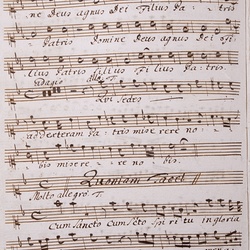 ne Deus agnus Dei Filius Pa - tris
Patris Domine Deus agnus Dei fi
lius Patris filius filius Pa - tris
adagio allo
Qui sedes
ad dexteram Pa - tris mise rere no
bis mise re - re no - bis.
Quoniam Tacet
Molto allegro
Cum Sancto Cum Scto Spi ri tu in gloria